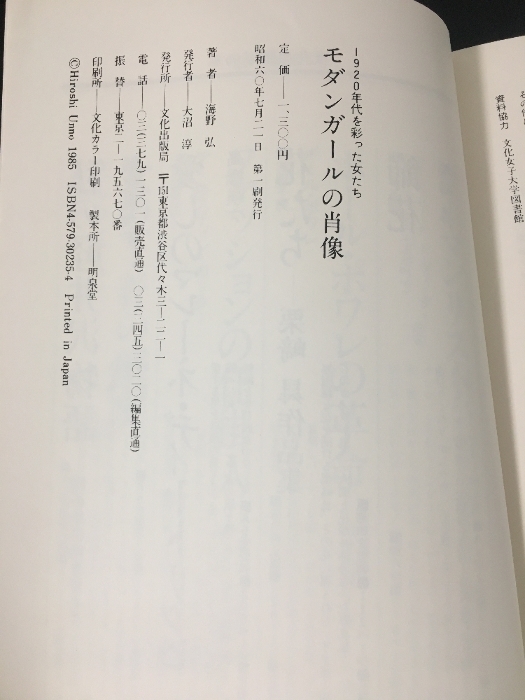 資料協力 文化女子大学図書館
1920年代を彩った女たち
モダンガールの肖像
定 価——一、三〇〇円
昭和六〇年七月二一日 第一刷発行
著 者——海野 弘
発行者——大沼 淳
発行所——文化出版局 〒151東京都渋谷区代々木三—二二—一
電 話——〇三(三七九)一三〇一(販売直通) 〇三(二四五)二〇二〇(編集直通)
振 替——東京二—一九五六七〇番
印刷所——文化カラー印刷 製本所——明泉堂
©Hiroshi Unno 1985 ISBN4-579-30235-4 Printed in Japan